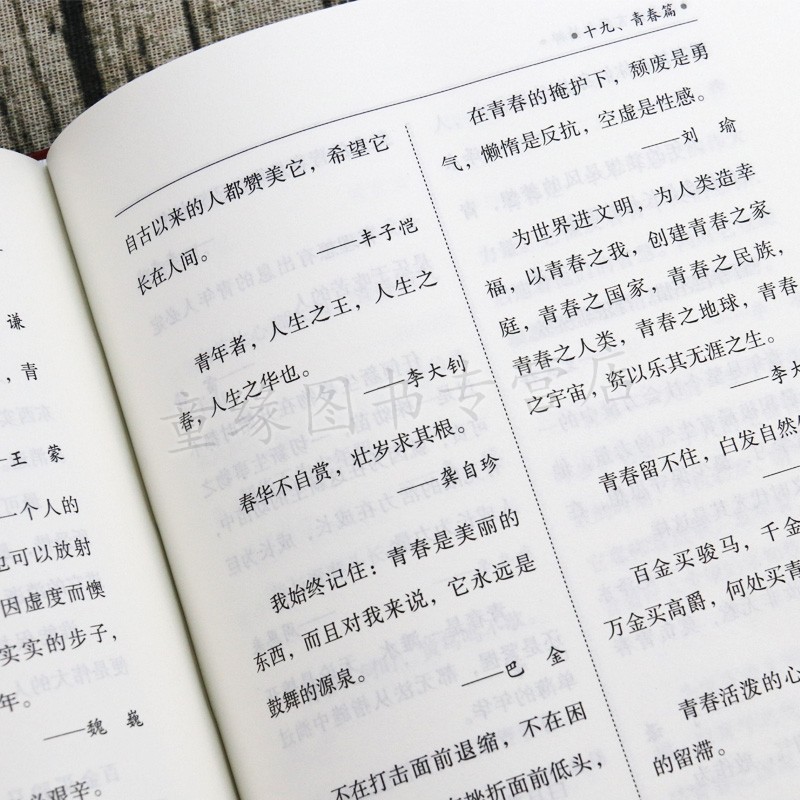 谦
，青
—王 蒙
—个人的
也可以放射
因虚度而懊
实实的步子，
年。
——魏 巍
艰辛。
•十九、青春篇•
自古以来的人都赞美它，希望它
长在人间。
——丰子恺
青年者，人生之王，人生之
春，人生之华也。
——李大钊
春华不自赏，壮岁求其根。
——龚自珍
我始终记住：青春是美丽的
东西，而且对我来说，它永远是
鼓舞的源泉。
——巴 金
不在打击面前退缩，不在困
挫折面前低头，
在青春的掩护下，颓废是勇
气，懒惰是反抗，空虚是性感。
——刘 瑜
为世界进文明，为人类造幸
福，以青春之我，创建青春之家
庭，青春之国家，青春之民族，
青春之人类，青春之地球，青春
之宇宙，资以乐其无涯之生。
——李大
青春留不住，白发自然
百金买骏马，千金
万金买高爵，何处买青
青春活泼的心
的留滞。
童缘图书专营店